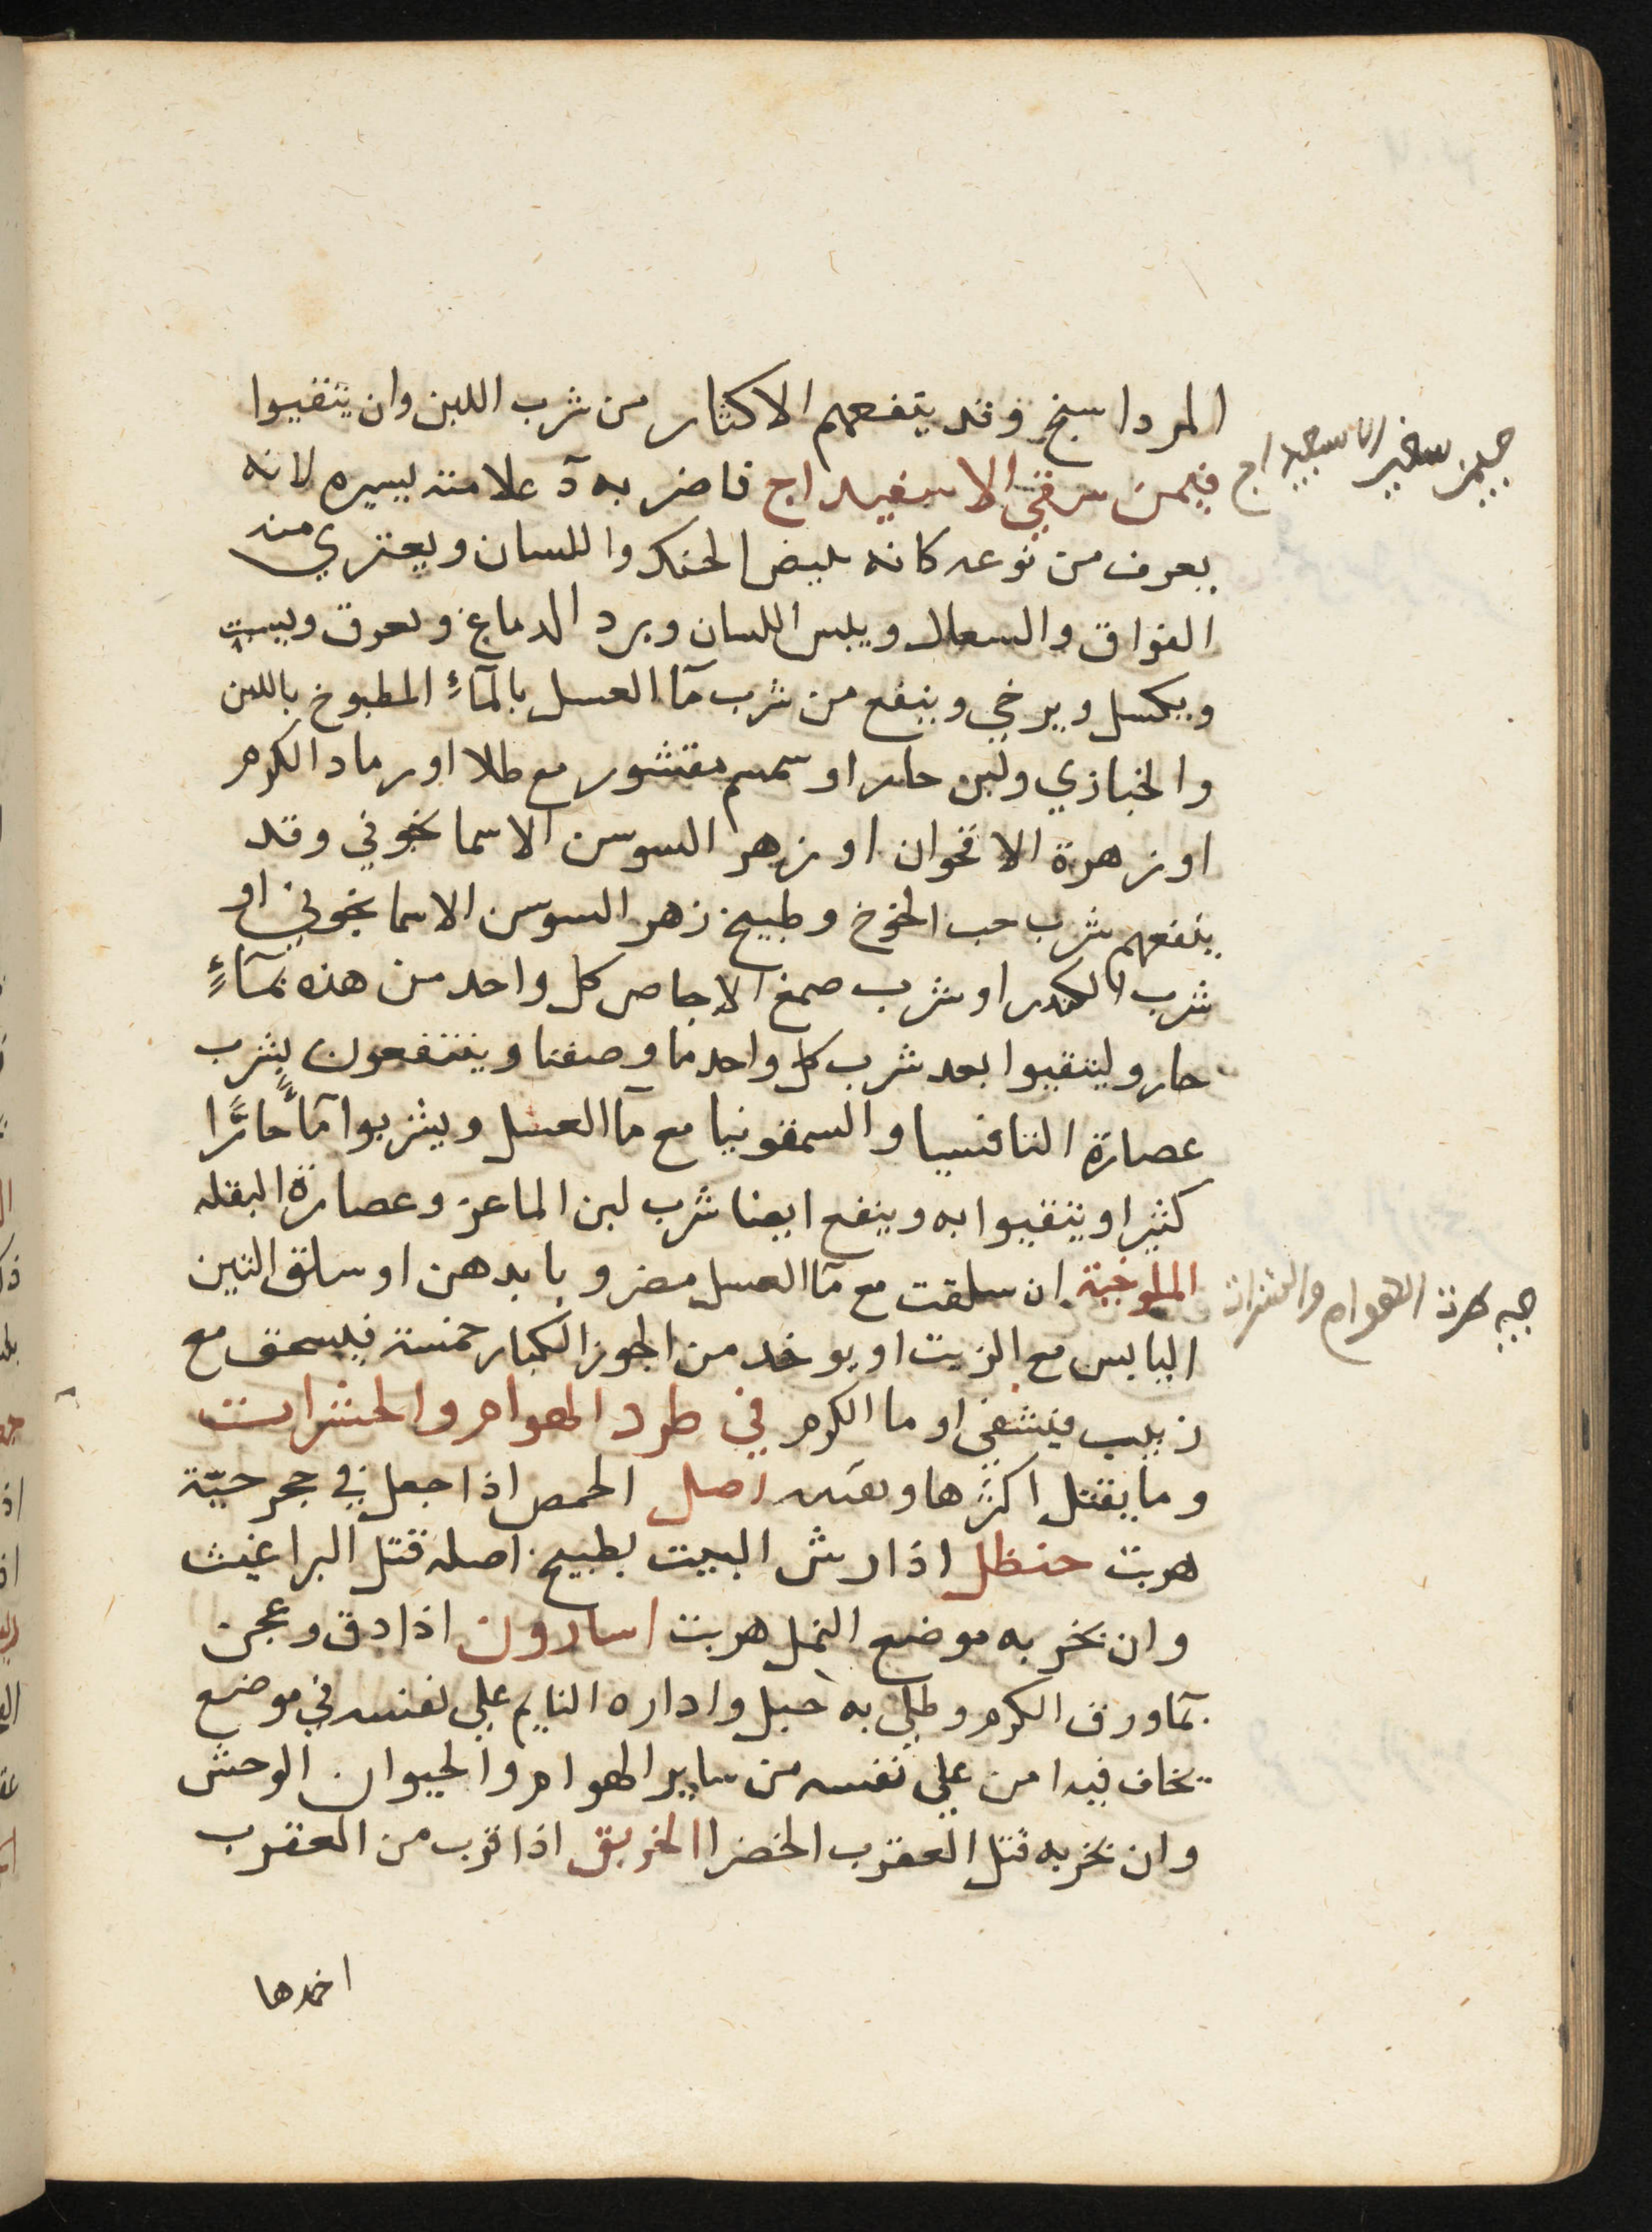 المرداسنج وقد ينفعهم الاكثار من شرب اللبن وان يتقيوا
فيمن سقي الاسفيداج فاضر به آ علامته يسيره لانه
يعرف من نوعه كانه يبيض الحنك واللسان ويعتري منه
الفواق والسعال ويبس اللسان وبرد الدماغ ويعرق ويسبت
ويكسل ويرخي وينفع من شرب مآ العسل بالمآءِ المطبوخ باللبن
والخبازي ولبن حار او سمسم مقشور مع طلا او رماد الكرم
او زهرة الاقحوان او زهر السوسن الاسمانجوني وقد
ينفعهم شرب حب الخوخ وطبيخ زهر السوسن الاسمانجوني او
شرب الكندر او شرب صمغ الاجاص كل واحد من هذه بمآءٍ
حار وليتقيوا بعد شرب كل واحد ما وصفنا وينتفعون بشرب
عصارة الثافسيا والسمقونيا مع مآ العسل ويشربوا مآءً حارًا
كثيرا ويتقيوا به وينفع ايضا شرب لبن الماعز وعصارة البقله
الملوخية ان سلقت مع مآ العسل مضروبا بدهن او سلق التين
اليابس مع الزيت او يوخد من الجوز الكبار خمسة فيسحق مع
زبيب فيشفي او ما الكرم في طرد الهوام والحشرات
وما يقتل اكثرها اصل الحمص اذا جعل في جحر حيّة
هربت حنظل اذا رش البيت بطبيخ اصله قتل البراغيث
وان بخر به موضع النمل هربت اسارون اذا دق وعجن
بمآ ورق الكرم وطلي به حبل واداره النايم علي نفسه في موضع
يخاف فيه امن علي نفسه من ساير الهوام والحيوان الوحش
وان بخر به قتل العقرب الخضرا الخربق اذا قرب من العقرب
اخمدها
الهوام والحشرات